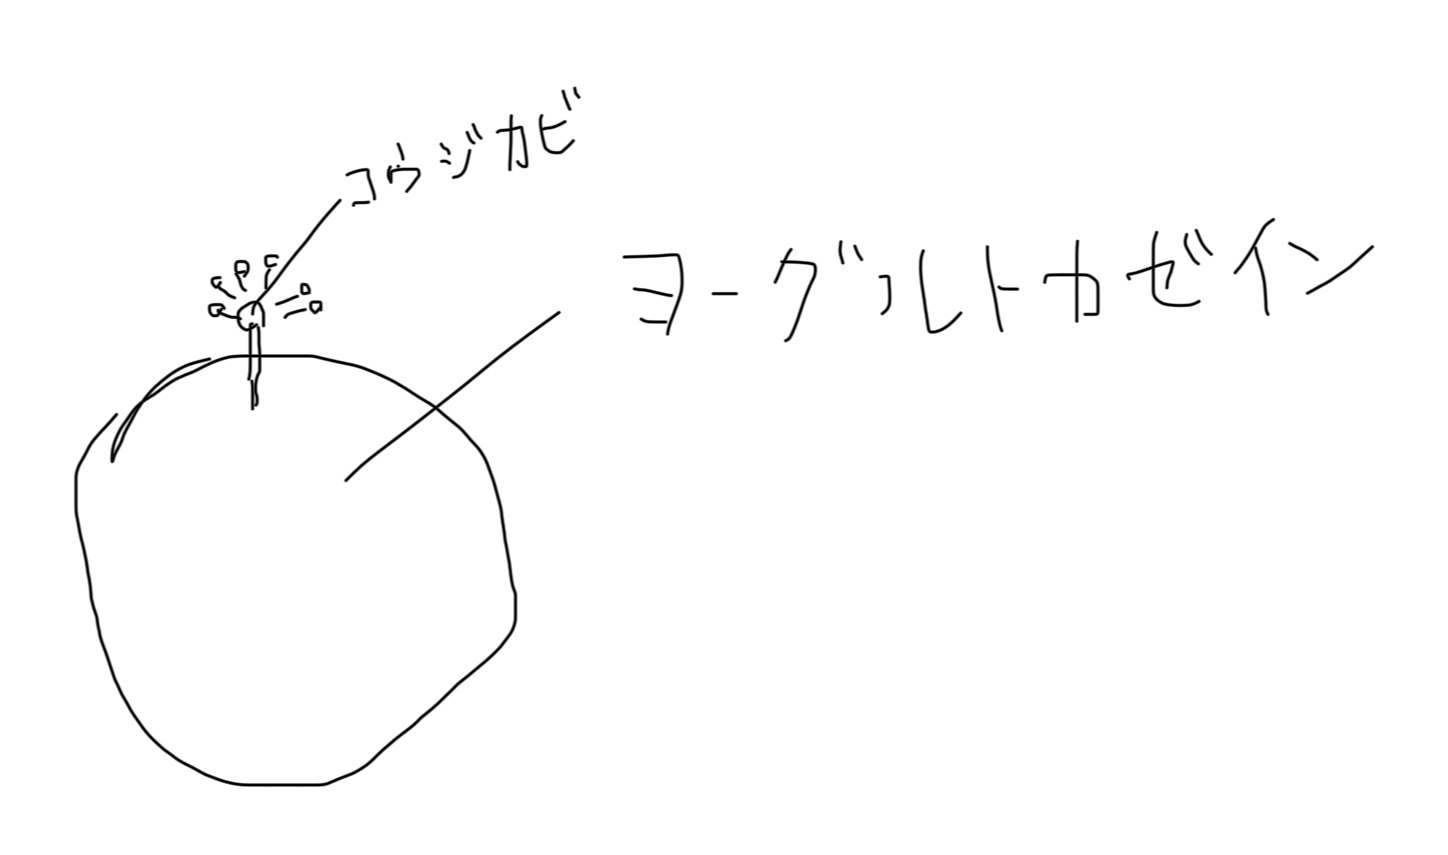 コウジカビ
ヨーグルトカゼイン